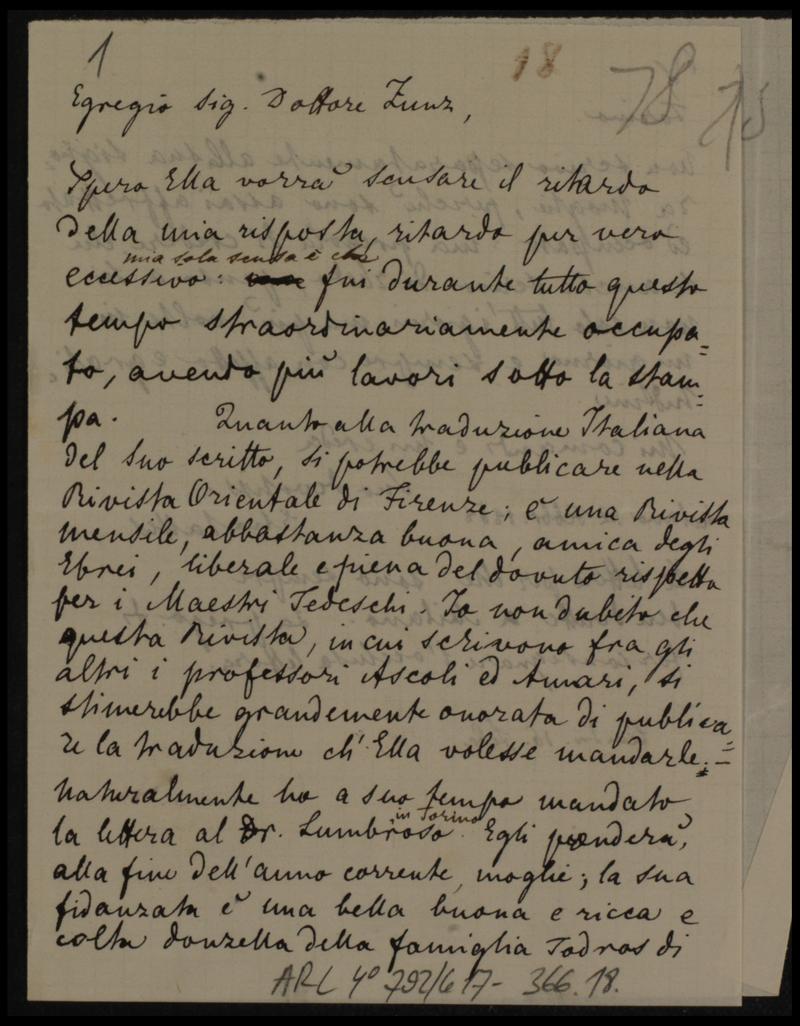 1
18
78
Egregio Sig. Dottore Zunz,
Spero Ella vorrà scusare il ritardo
della mia risposta, ritardo per vero
mia sola scusa è che
eccessivo: fui durante tutto questo
tempo straordinariamente occupa=
to, avendo più lavori sotto la stam=
pa. Quanto alla traduzione Italiana
del Suo scritto, si potrebbe publicare nella
Rivista Orientale di Firenze; è una Rivista
mensile, abbastanza buona, amica degli
Ebrei, liberale e piena del dovuto rispetto
per i Maestri Tedeschi. Io non dubito che
questa Rivista, in cui scrivono fra gli
altri i professori Ascoli ed Amari, si
stimerebbe grandemente onorata di publica=
re la traduzione ch' Ella volesse mandarle. —
Naturalmente ho a suo tempo mandato
in Torino
la lettera al Dr. Lumbroso. Egli prenderà,
alla fine dell'anno corrente, moglie; la sua
fidanzata è una bella buona e ricca e
colta donzella della famiglia Todros di
ARC 4° 792/G 17- 366.18.